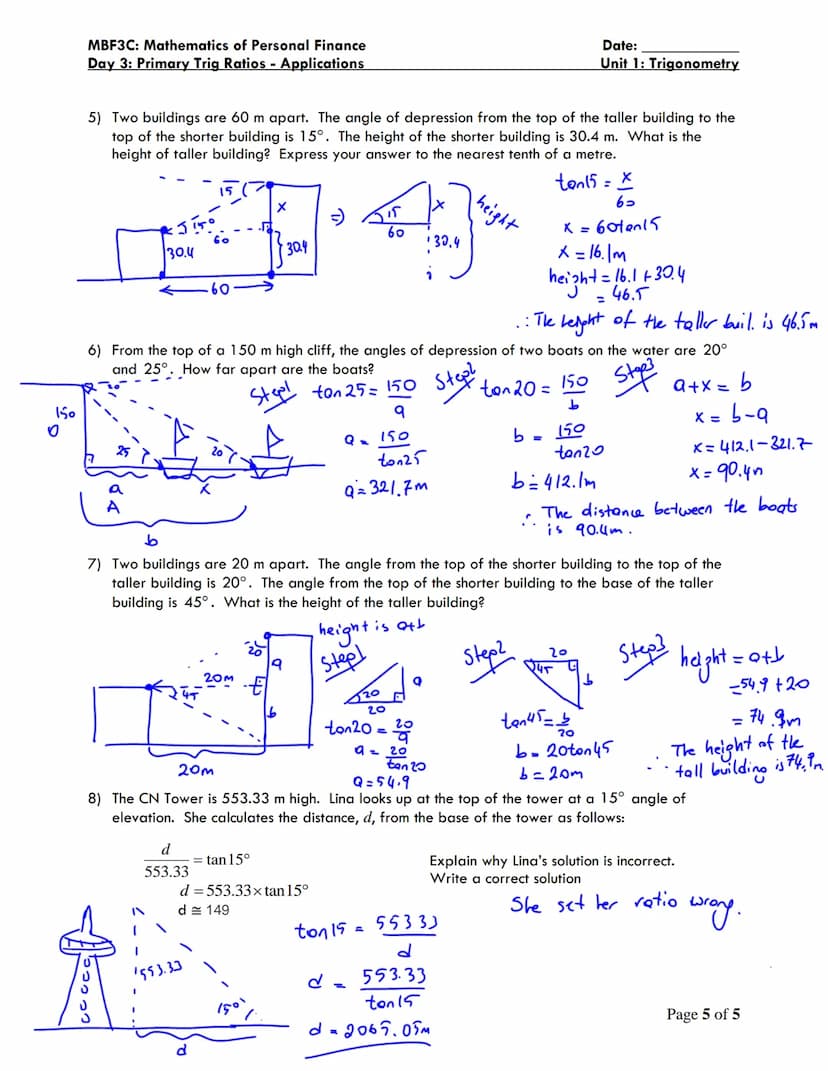 MBF3C: Mathematics of Personal Finance Date: ____________
Day 3: Primary Trig Ratios - Applications Unit 1: Trigonometry
5) Two buildings are 60 m apart. The angle of depression from the top of the taller building to the
top of the shorter building is 15°. The height of the shorter building is 30.4 m. What is the
height of taller building? Express your answer to the nearest tenth of a metre.
15
x
15°
60
30.4
30.4
60
⇒
15
x
60
30.4
height
tan15 = x/60
x = 60tan15
x = 16.1m
height = 16.1 + 30.4
= 46.5
∴ The height of the taller buil. is 46.5m
6) From the top of a 150 m high cliff, the angles of depression of two boats on the water are 20°
and 25°. How far apart are the boats?
20
150
25
20
a
x
A
b
Step1
tan25 = 150/a
a = 150/tan25
a ≐ 321.7m
Step2
tan20 = 150/b
b = 150/tan20
b ≐ 412.1m
Step3
a+x = b
x = b-a
x = 412.1-321.7
x = 90.4m
∴ The distance between the boats
is 90.4m.
7) Two buildings are 20 m apart. The angle from the top of the shorter building to the top of the
taller building is 20°. The angle from the top of the shorter building to the base of the taller
building is 45°. What is the height of the taller building?
20
a
20m
45
b
20m
height is a+b
Step1
20
a
20
tan20 = 20/a
a = 20/tan20
a = 54.9
Step2
20
45
b
tan45 = b/20
b = 20tan45
b = 20m
Step3
height = a+b
= 54.9 + 20
= 74.9m
∴ The height of the
tall building is 74.9m
8) The CN Tower is 553.33 m high. Lina looks up at the top of the tower at a 15° angle of
elevation. She calculates the distance, d, from the base of the tower as follows:
d/553.33 = tan15°
d = 553.33 × tan15°
d ≅ 149
Explain why Lina's solution is incorrect.
Write a correct solution
She set her ratio wrong.
553.33
15°
d
tan15 = 553.33/d
d = 553.33/tan15
d = 2065.05m
Page 5 of 5